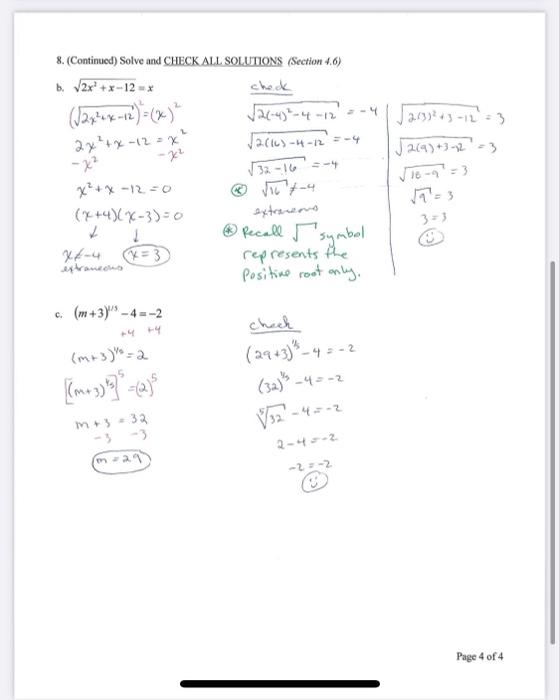 8. (Continued) Solve and CHECK ALL SOLUTIONS (Section 4.6)
b. √(2x² + x − 12) = x
(√(2x²+x−12))² = (x)²
2x²+x−12 = x²
−x² −x²
x²+x−12=0
(x+4)(x−3)=0
↓ ↓
x≠−4 x=3
extraneous
check
√(2(−4)²−4−12) = −4
√(2(16)−4−12) = −4
√(32−16) = −4
⊛ √16 ≠ −4
extraneous
⊛ Recall √ symbol
represents the
Positive root only.
√(2(3)²+3−12) = 3
√(2(9)+3−12) = 3
√(18−9) = 3
√9 = 3
3=3
☺
c. (m+3)^(1/5) − 4 = −2
+4 +4
(m+3)^(1/5) = 2
[(m+3)^(1/5)]^5 = (2)^5
m+3 = 32
−3 −3
m=29
check
(29+3)^(1/5) − 4 = −2
(32)^(1/5) − 4 = −2
⁵√32 − 4 = −2
2−4=−2
−2=−2
☺
Page 4 of 4